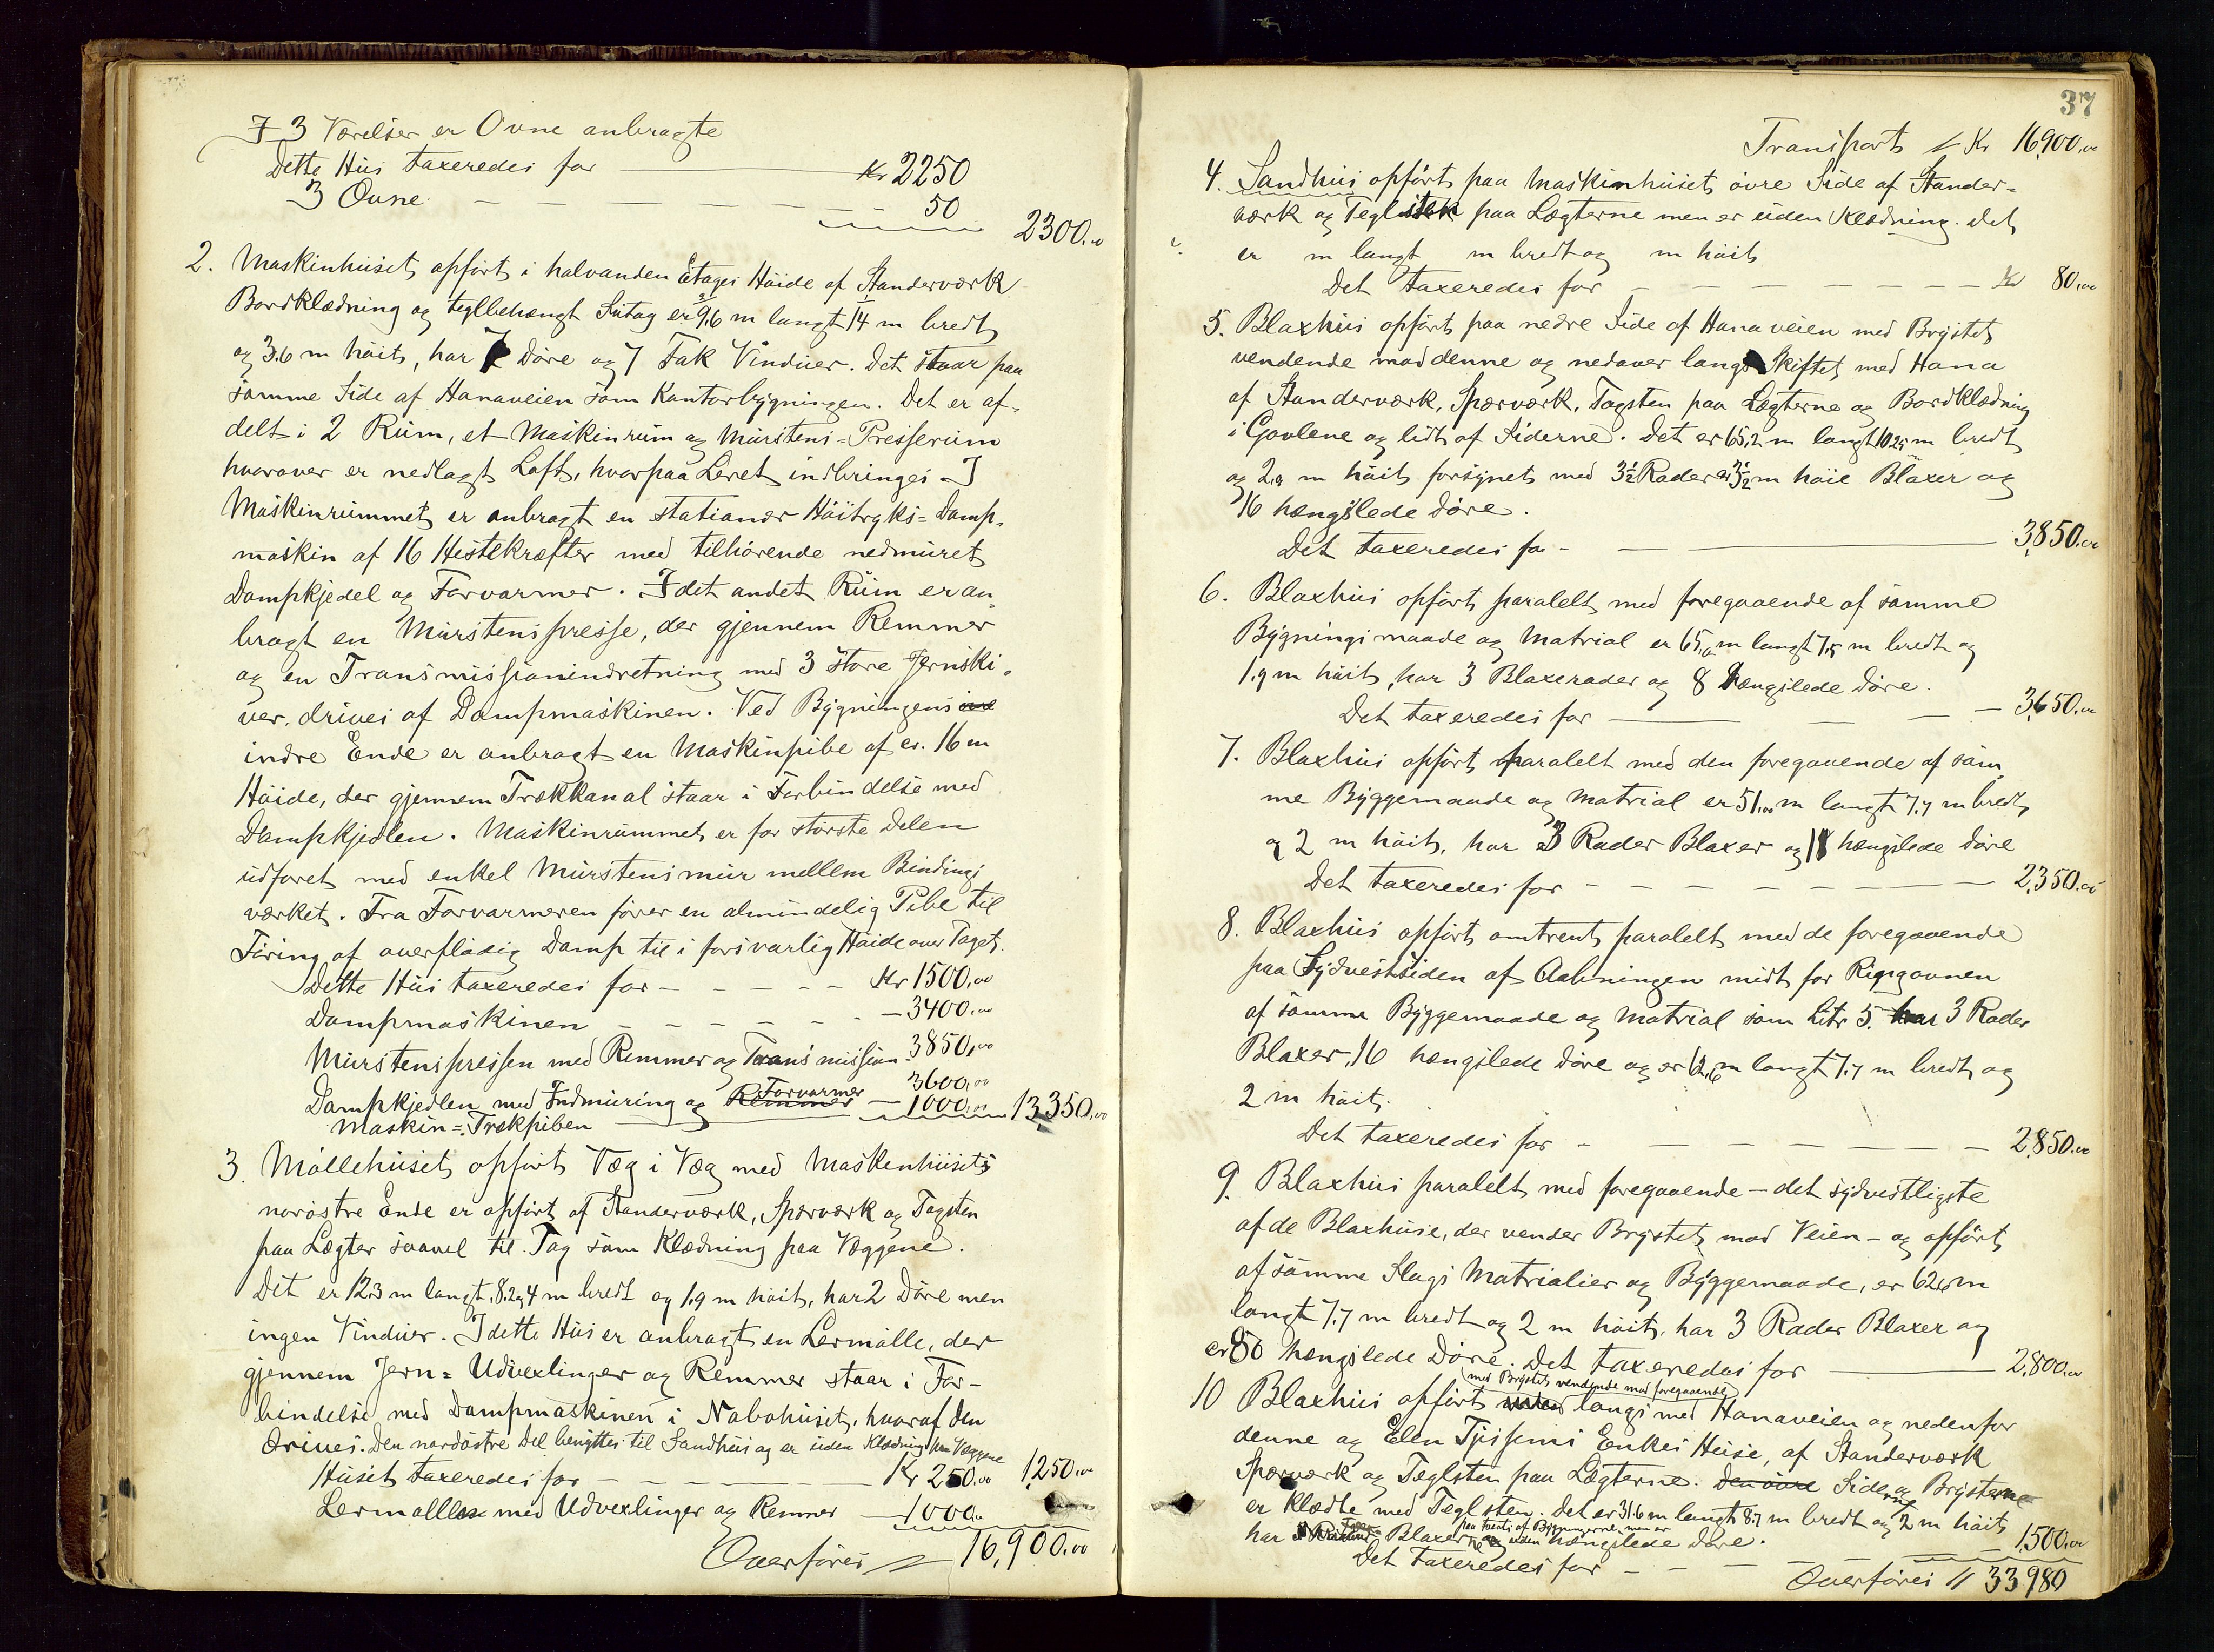 I 3 Værelser er Ovne anbragte
Dette Hus taxeredes for Kr 2250
3 Ovne 50
2300.00
2. Maskinhuset opført i halvanden Etages Høide af Standerværk
Bordklædning og teglbehængt Sutag er 9,6 m langt 14 m bredt
og 3.6 m høit, har Døre og 7 Fak Vinduer. Det staar paa
samme Side af Hanaveien som Kontorbygningen. Det er af-
delt i 2 Rum, et Maskinrum og Murstens-Presserum
hvorover er nedlagt Loft, hvorpaa Leret indbringes. I
Maskinrummet er anbragt en stationær Høitryks-Damp-
maskin af 16 Hestekræfter med tilhørende nedmuret
Dampkjedel og Forvarmer. I det andet Rum er an-
bragt en Murstenspresse, der gjennem Remmer
og en Transmissionindretning med 3 store Jernski-
ver, drives af Dampmaskinen. Ved Bygningens
indre Ende er anbragt en Maskinpibe af ca. 16 m
Høide, der gjennem Trækkanal staar i Forbindelse med
Dampkjedlen. Maskinrummet er for største Delen
udforet med enkel Murstensmur mellem Bindings
værket. Fra Forvarmeren fører en almindelig Pibe til
Føring af overflødig Damp til i forsvarlig Høide over Taget.
Dette Hus taxeredes for - Kr 1500.00
Dampmaskinen - 3400.00
Murstenspressen med Remmer og Transmission 3850.00
Dampkjedlen med Indmuring og Remmer Forvarmer - 3600.00
Maskin-Trækpiben 1000.00 13350.00
3. Møllehuset opført Væg i Væg med Maskenhusets
norøstre Ende er opført af Standerværk, Sperværk og Tagsten
paa Lægter saavel til Tag som Klædning paa Væggene.
Det er 12.3 m langt, 8.2 og 4 m bredt og 1.9 m høit, har 2 Døre men
ingen Vinduer. I dette Hus er anbragt en Lermølle, der
gjennem Jern-Udvexlinger og Remmer staar i For-
bindelse med Dampmaskinen i Nabohuset, hvoraf den
drives. Den nordøstre Del benyttes til Sandhus og er uden Klædning paa Væggene
Huset taxeredes for - Kr 250.00 1250.00
Lermøllen med Udvexlinger og Remmer - 1000.00
Overføres 16,900.00
37
Transport Kr 16900.00
4. Sandhus opført paa Maskinhuset øvre Side af Stander-
værk og Teglsten paa Lægterne men er uden Klædning. Det
er m langt m bredt og m høit
Det taxeredes for - Kr 80.00
5. Blaxhus opført paa nedre Side af Hanaveien med Brystet
vendende mod denne og nedover langs Skiftet med Hana
af Standerværk, Sperværk, Tagsten paa Lægterne og Bordklædning
i Gavlene og lidt af Siderne. Det er 65,2 m langt 10.25 m bredt
og 2,9 m høit forsynet med 3½ Rader 3½ m høie Blaxer og
16 hængslede Døre.
Det taxeredes for - 3,850.00
6. Blaxhus opført paralelt med foregaaende af samme
Bygningsmaade og Matrial er 65,0 m langt 7,5 m bredt og
1.9 m høit, har 3 Blaxerader og 8 hængslede Døre.
Det taxeredes for - 3,650.00
7. Blaxhus opført paralelt med den foregaaende af sam
me Byggemaade og Matrial er 51,00 m langt 7.7 m bredt
og 2 m høit, har 3 Rader Blaxer og 18 hængslede Døre
Det taxeredes for - 2,350.00
8. Blaxhus opført omtrent paralelt med de foregaaende
paa Sydvestsiden af Aabningen midt for Ringovnen
af samme Byggemaade og Matrial som Litr 5. har 3 Rader
Blaxer, 16 hængslede Døre og er 62,6 m langt 7.7 m bredt og
2 m høit.
Det taxeredes for - 2,850.00
9. Blaxhus paralelt med foregaaende - det sydvestligste
af de Blaxhuse, der vender Brystet mod Veien - og opført
af samme Slags Matrialier og Byggemaade, er 62,6 m
langt 7.7 m bredt og 2 m høit, har 3 Rader Blaxer og
hængslede Døre. Det taxeredes for 2,800.00
(med Brystet vendende mod foregaaende)
10 Blaxhus opført langs med Hanaveien og nedenfor
denne og Elen Enkes Huse, af Standerværk
Sperværk og Teglsten paa Lægterne. Den øvre Siderne og Brysterne
er klædte med Teglsten. Det er 31.6 m langt 8.7 m bredt og 2 m høit
paa tvers af Bygningerne, men er
har Blaxer uden hængslede Døre.
Det taxeredes for - 1,500.00
Overføres 33980